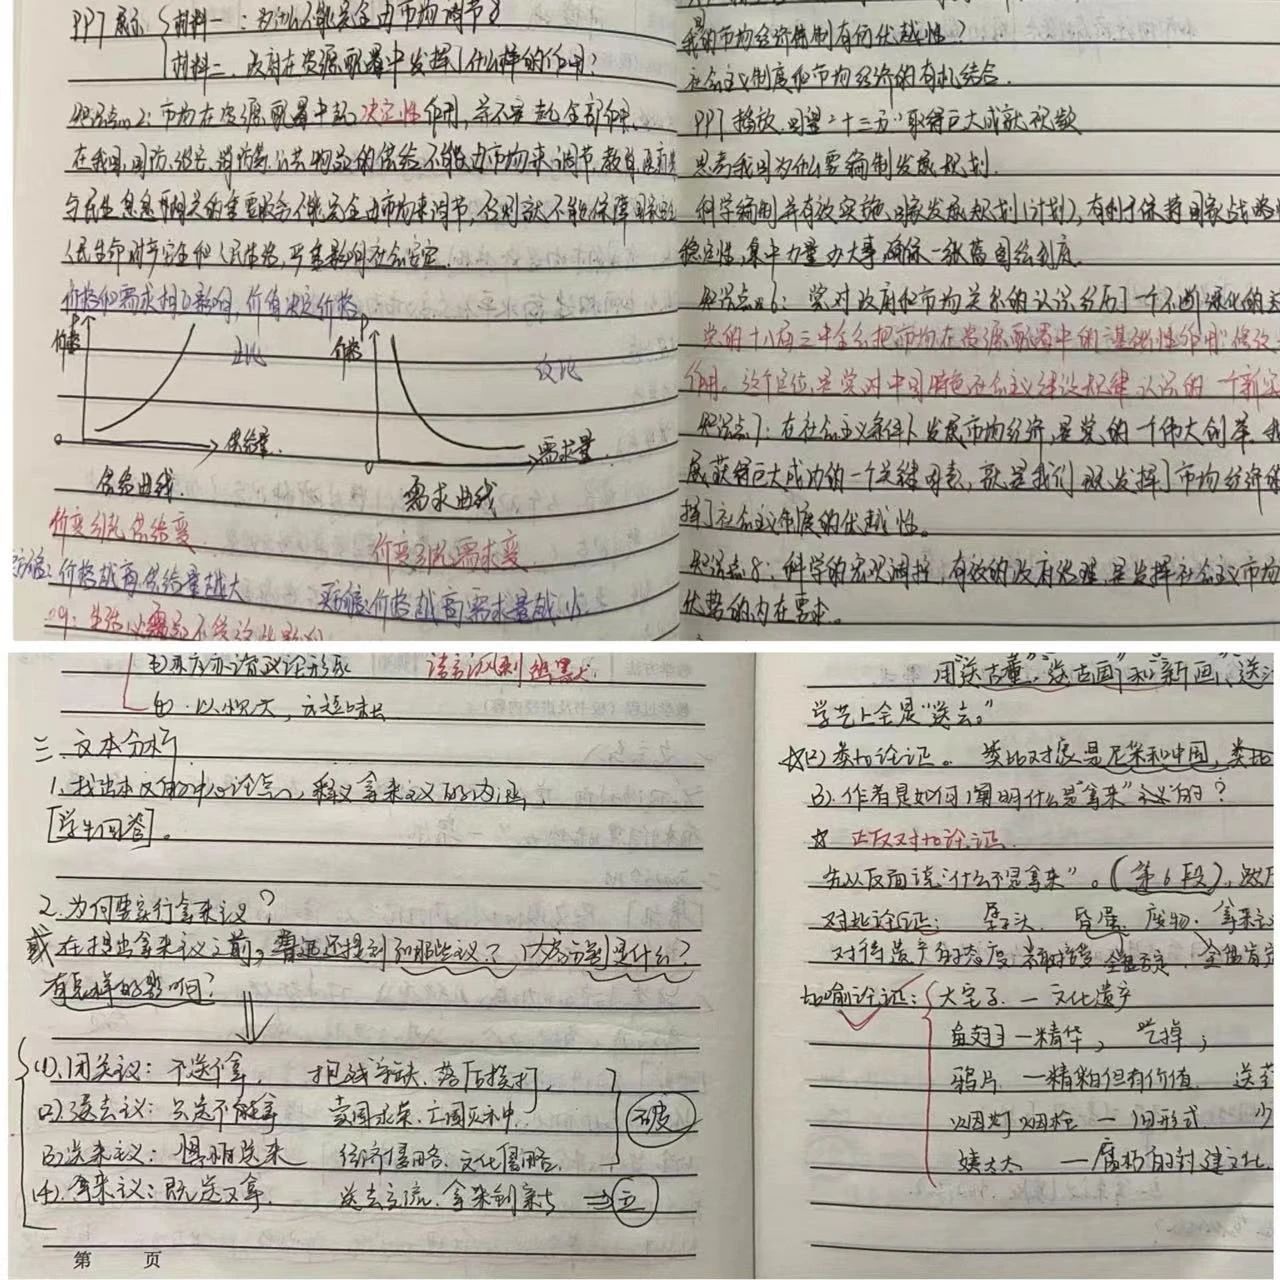 PPT展示 材料一：为什么不能完全由市场调节？
材料二、政府在资源配置中发挥了什么样的作用？
知识点2：市场在资源配置中起决定性作用，并不是起全部作用.
在我国，国防、治安、消防等公共物品的供给不能由市场来调节，教育、医疗等
与民生息息相关的重要服务不能完全由市场来调节，否则就不能保障国家
人民生命财产安全和人民生活，严重影响社会安定.
价格和需求相互影响，价值决定价格
价格 P 正比
0 供给量.
供给曲线.
价格 P 反比
0 需求量
需求曲线
价变引起供给变
价变引起需求变
价格越高供给量越大
买方偏：价格越高需求量越小
我的市场经济体制有何优越性？
社会主义制度和市场经济的有机结合.
PPT播放.回望"十三五"取得巨大成就视频
思考我国为什么要编制发展规划.
科学编制并有效实施国家发展规划(计划)，有利于保持国家战略
稳定性，集中力量办大事，确保一张蓝图绘到底.
知识点6：党对政府和市场关系的认识经历了一个不断深化的
党的十八届三中全会把市场在资源配置中的"基础性作用"修改
作用。这个定位，是党对中国特色社会主义建设规律认识的一个新
知识点7：在社会主义条件下发展市场经济，是党的一个伟大创举.我
展获得巨大成功的一个关键因素，就是我们既发挥了市场经济的
挥了社会主义制度的优越性。
知识点8：科学的宏观调控、有效的政府治理，是发挥社会主义市场
优势的内在要求。
语言讽刺幽默
三.文本分析
1.找出本文的中心论点，释义拿来主义的内涵
[学生回答]。
2.为何要实行拿来主义？
或在提出拿来主义之前，鲁迅还提到了哪些主义？内容分别是什么？
有怎样的影响？
(1).闭关主义：不送不拿. 抱残守缺、落后挨打.
(2).送去主义：只送不能拿 卖国求荣.亡国灭种.
(3)送来主义：惧怕送来 经济侵略、文化侵略.
破
(4).拿来主义：既送又拿. 送去交流.拿来创新 ⇒立
第 页
用"送古董""送古画"和新画、送
学艺上全是"送去。"
☆(2)类比论证。 类比对象是尼采和中国，类比
(3).作者是如何阐明什么是"拿来"主义的？
☆ 正反对比论证.
先从反面说"什么不是拿来"。(第6段)，
对比论证：孱头、昏蛋、废物、拿来主
对待遗产的态度 全盘否定. 全盘肯定
比喻论证：大宅子—文化遗产
鱼翅—精华，吃掉；
鸦片—精粕但有价值. 送
烟灯烟枪—旧形式.
姨太太—腐朽的封建文化